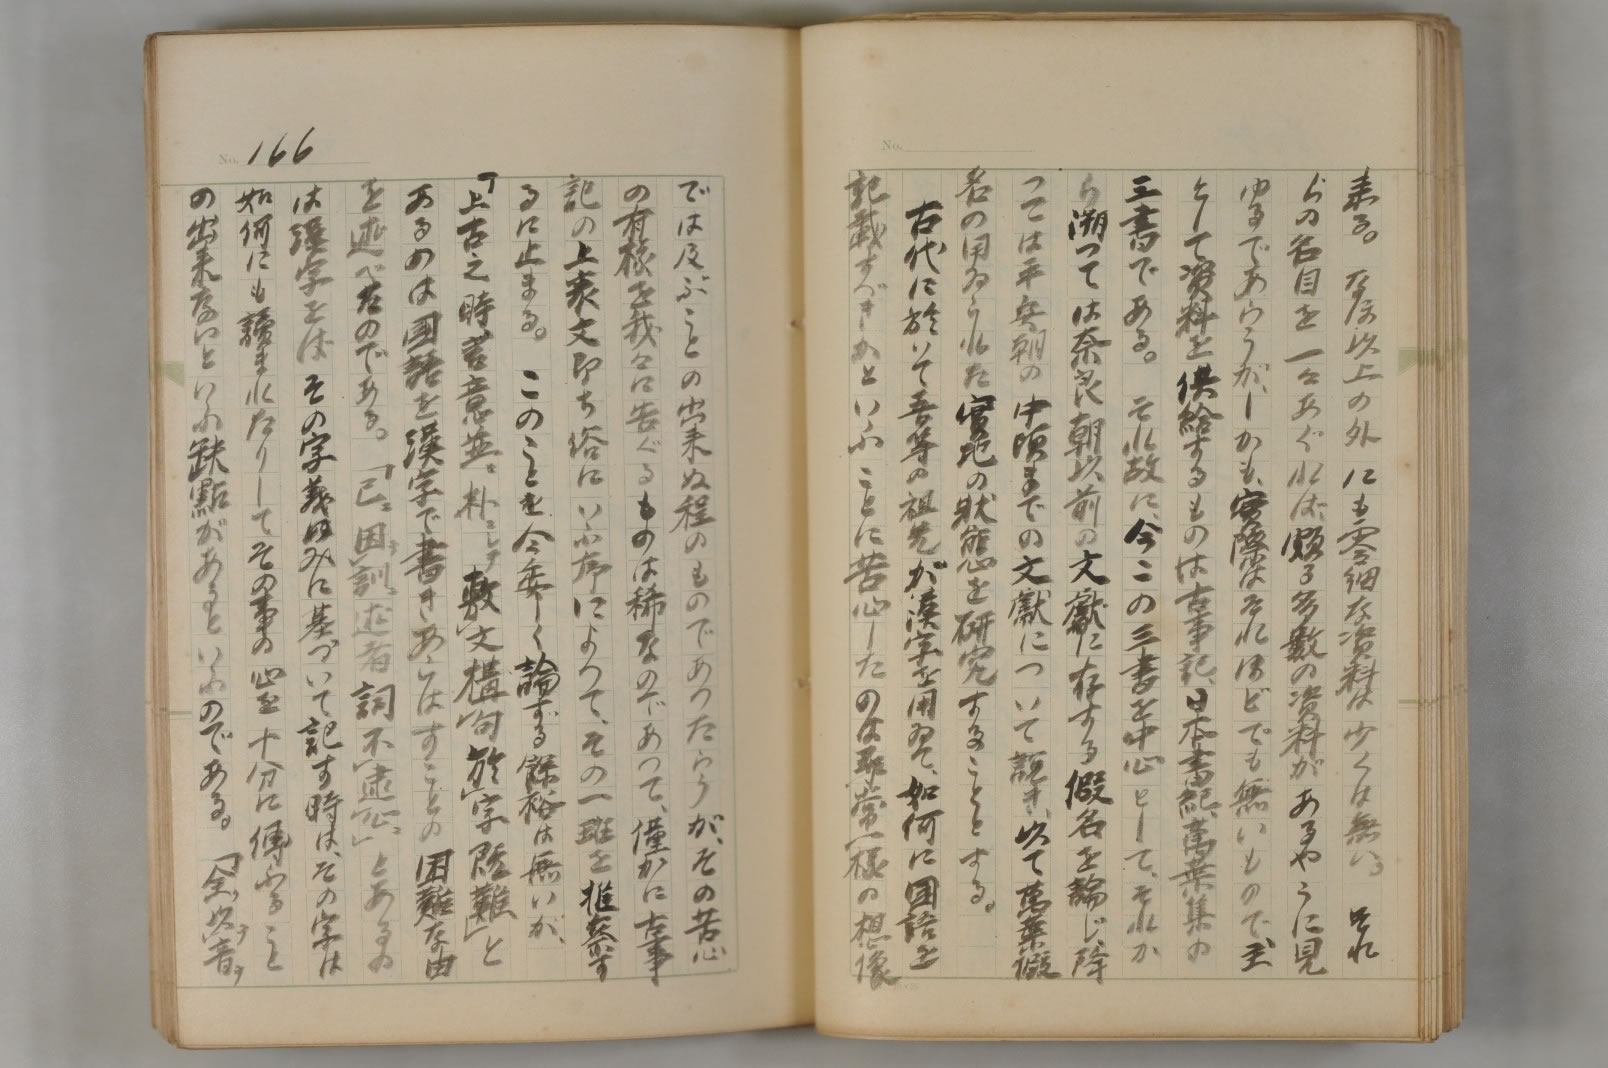 来る。なほ以上の外にも零細な資料は少くは無い。それ
らの名目を一々あぐれば、頗る多数の資料があるやうに見
ゆるであらうが、しかも、実際はそれほどでも無いもので、主
として資料を供給するものは古事記、日本書紀、萬葉集の
三書である。それ故に、今この三書を中心として、それか
ら溯つては奈良朝以前の文献に存する假名を論じ、降
つては平安朝の中頃までの文献について説き、以て萬葉假
名の用ゐられた実地の状態を研究することとする。
古代に於いて吾等の祖先が漢字を用ゐて、如何に国語を
記載すべきかといふことに苦心したのは尋常一様の想像
No. 166
では及ぶことの出来ぬ程のものであつたらうが、その苦心
の有様を我々に告ぐるものは稀なのであつて、僅かに古事
記の上表文即ち俗にいふ序によつて、その一斑を推察す
るに止まる。このことを今委しく論ずる餘裕は無いが、
「上古之時言意並ニ朴ニシテ敷文構句於字即難」と
あるのは国語を漢字で書きあらはすことの困難な由
を述べたのである。「已ニ因訓述者詞不逮心」とあるの
は漢字をば その字義のみに基づいて記す時は、その字は
如何にも讀まれたりして、その事の心を十分に傳ふること
の出来ないといふ缺點があるといふのである。「全以音ヲ
No.